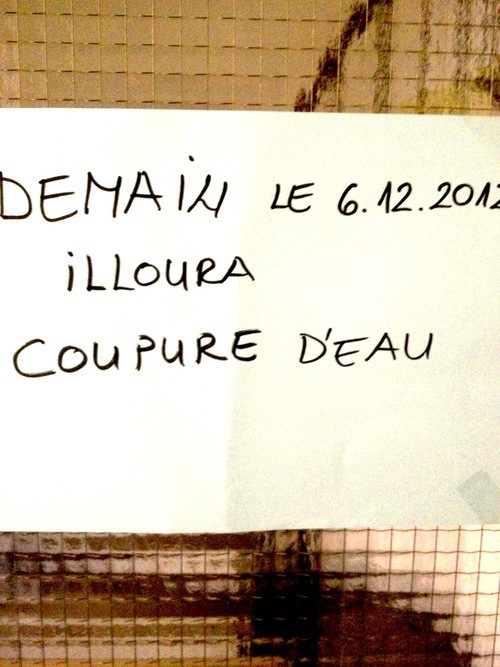 DEMAIN LE 6.12.2012
iLLOURA
COUPURE D'EAU